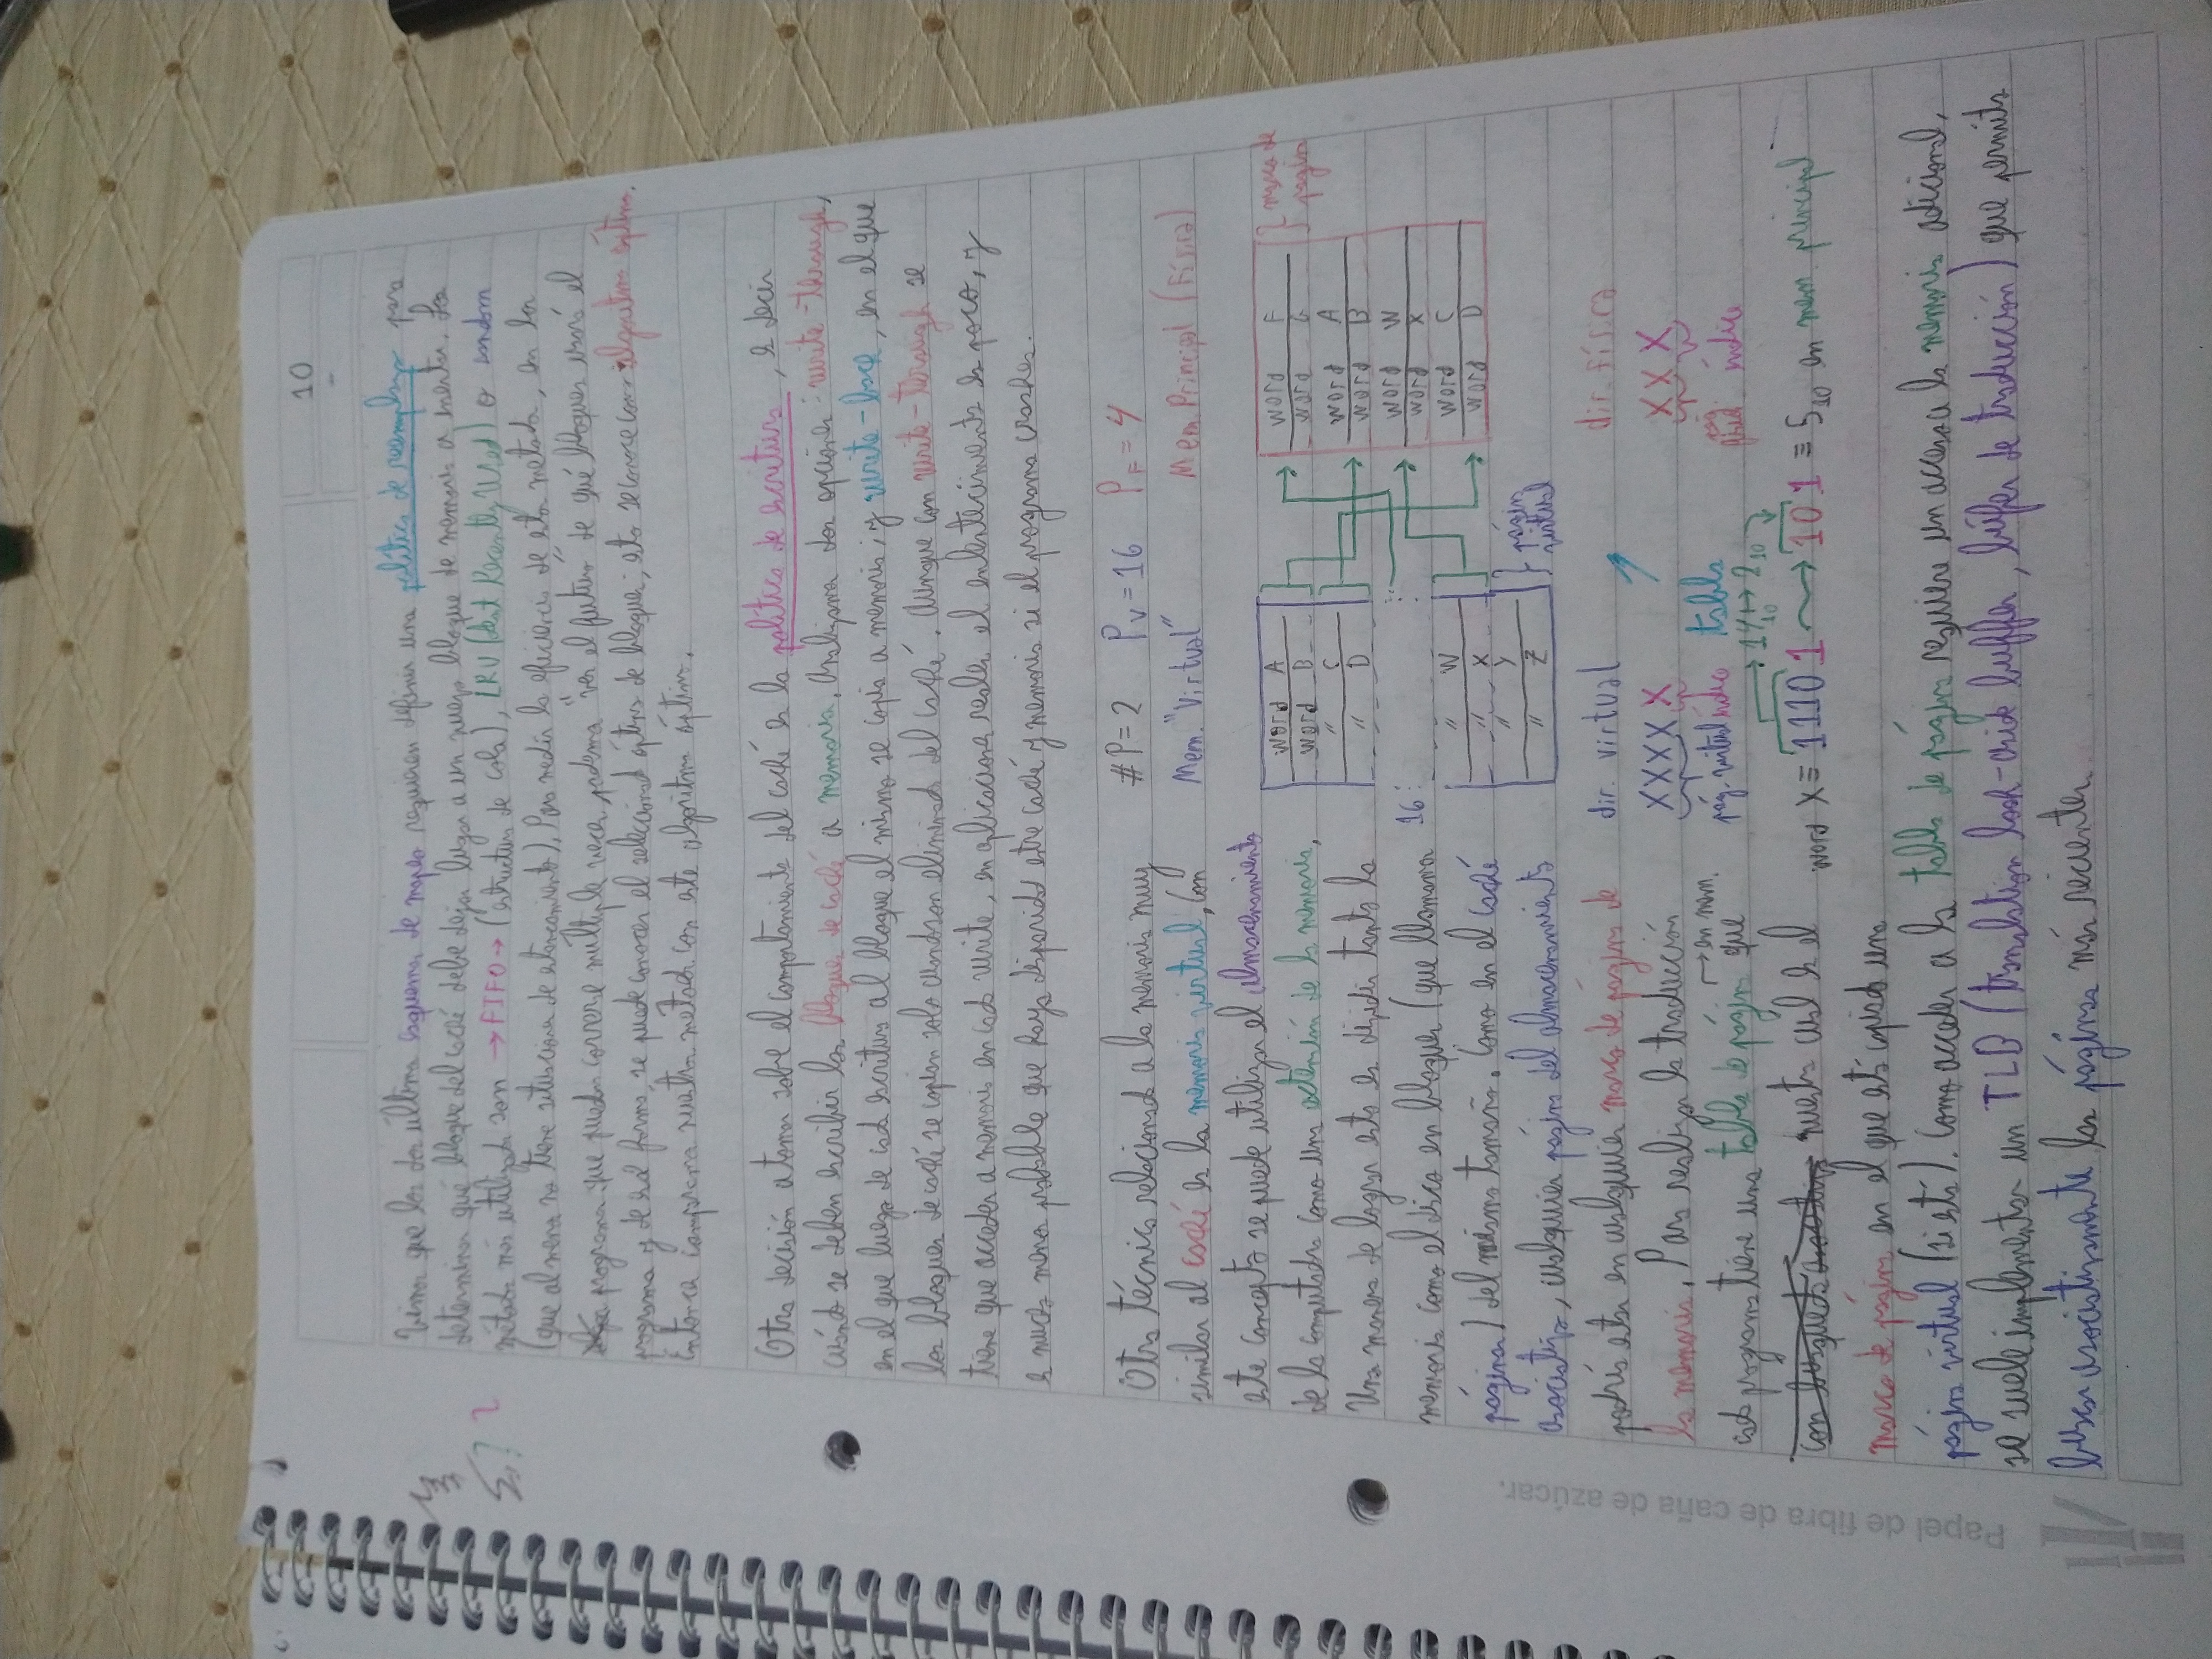 10
Vimos que los dos últimos esquemas de mapeo requieren definir una política de reemplazo para
determinar qué bloque del caché debe dejar lugar a un nuevo bloque de memoria a insertar. Los
métodos más utilizados son → FIFO → (estructura de cola), LRU (Least Recently Used) o random
(que al menos no tiene situaciones de estancamiento). Para medir la eficiencia de estos métodos, en los
programas que puedan correrse múltiples veces, podemos "ver el futuro" de qué bloques usará el
programa y de esa forma, se puede conocer el selecciond óptimo de bloques; esto se conoce como algoritmo óptimo.
Entonces comparamos nuestros métodos con este algoritmo óptimo.
Otra decisión a tomar sobre el comportamiento del caché es la política de escritura, es decir
cuándo se deben escribir los bloques de caché a memoria. Analizamos dos opciones: write-through,
en el que luego de cada escritura al bloque el mismo se copia a memoria; y write-back, en el que
los bloques de caché se copian solo cuando son eliminados del caché. Aunque con write-through se
tiene que acceder a memoria en cada write, en aplicaciones reales el enlentecimiento es poco, y
es mucho menos probable que haya disparidad etre caché y memoria si el programa crashea.
Otra técnica relacionada a la memoria muy
similar al caché es la memoria virtual, Con
este concepto se puede utilizar el almacenamiento
de la computadora como una extensión de la memoria.
Una manera de lograr esto es dividir tanto la
memoria como el disco en bloques (que llamamos
páginas) del mismo tamaño. Como en el caché
asociativo, cualquier página del almacenamiento
podría estar en cualquier marco de página de
la memoria. Para realizar la traducción
→ en mem.
cada programa tiene una tabla de páginas que
muestra cuál es el
marco de página en el que está copiada una
página virtual (si está). Como acceder a la tabla de páginas requiere un acceso a la memoria adicional,
se suele implementar un TLB (translation look-aside buffer, búfer de traducción) que permita
buscar asociativamente las páginas más recientes.
#P=2 Pv=16 PF=4
Mem. "Virtual" Mem. Principal (Física)
word A
word B
" C
" D
16
" W
" X
" Y
" Z
página
virtual
word F
word G
word A
word B
word W
word X
word C
word D
marco de
página
dir. virtual dir. física
XXXX X XX X
pág. virtual índice tabla pág. física índice
→ 14₁₀ ↦ 2₁₀
word X ≡ 11101 → 101 ≡ 5₁₀ en mem. principal
Papel de fibra de caña de azúcar.